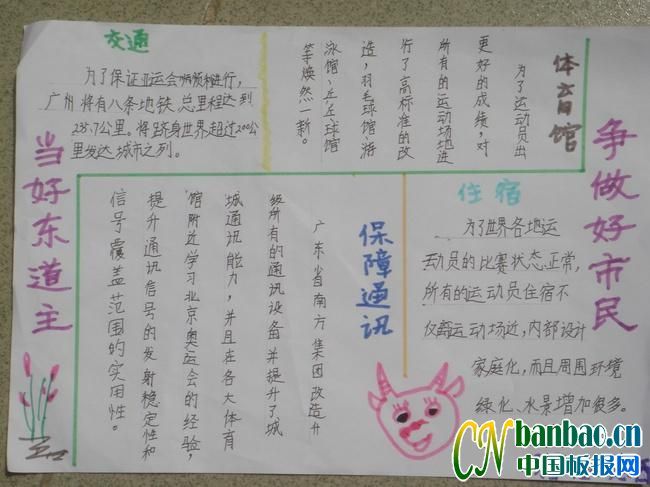 当好东道主
争做好市民
交通
为了保证亚运会的顺利进行，
广州将有八条地铁，总里程达到
235.7公里。将跻身世界超过200公
里发达城市之列。
体育馆
为了运动员出
更好的成绩，对
所有的运动场地进
行了高标准的改
造，羽毛球馆、游
泳馆、乒乓球馆
等焕然一新。
保障通讯
广东省南方集团改造升
级所有的通讯设备并提升了城
城通讯能力，并且在各大体育
馆附近学习北京奥运会的经验，
提升通讯信号的发射稳定性和
信号覆盖范围的实用性。
住宿
为了世界各地运
动员的比赛状态正常，
所有的运动员住宿不
仅离运动场近，内部设计
家庭化，而且周围环境
绿化、水景增加很多。
CN banbao.cn
中国板报网